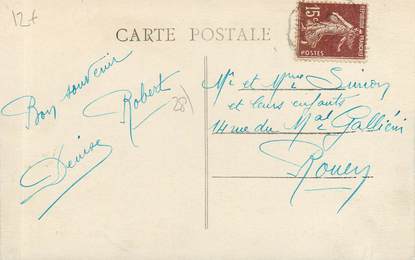 12f
CARTE POSTALE
15c
POSTES
Bon souvenir
Robert
Denise
28
Mr et Mme Simon
et leurs enfants
14 rue du Mal Galliéni
Rouen